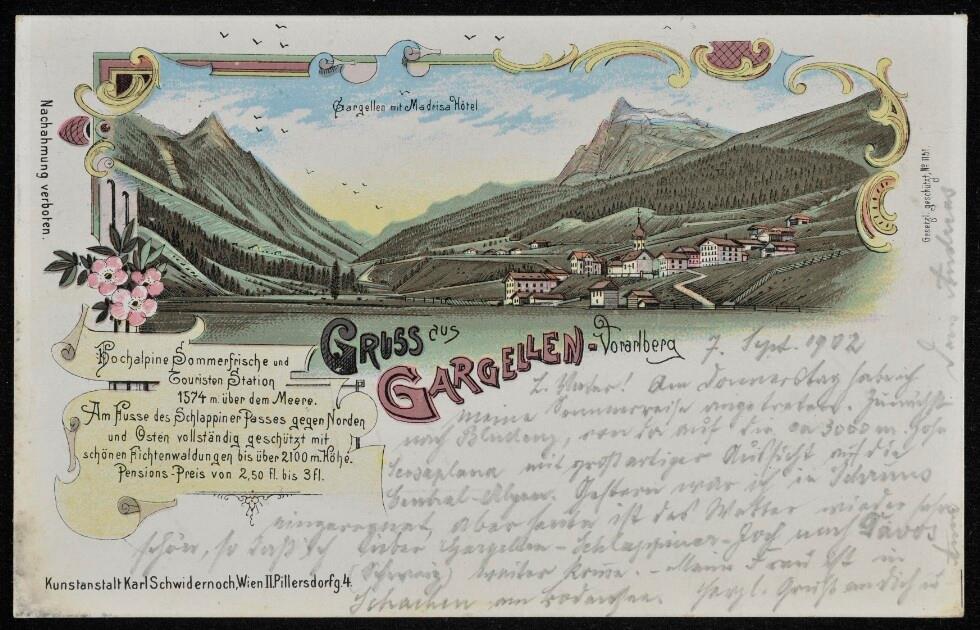 Gargellen mit Madrisa Hôtel
Nachahmung verboten.
Gesetzl. geschützt, No 1161.
Gruss aus
Gargellen-Vorarlberg
Hochalpine Sommerfrische und
Touristen Station
1574 m. über dem Meere.
Am Fusse des Schlappiner Passes gegen Norden
und Osten vollständig geschützt mit
schönen Fichtenwaldungen bis über 2100 m. Höhe.
Pensions-Preis von 2,50 fl. bis 3 fl.
7. Sept. 1902
Am Donnerstag habe ich
meine Sommerreise angetreten. Zunächst
nach Bludenz, von da auf die ca 3000 m. hohe
Scesaplana mit großartiger Aussicht auf die
Central-Alpen. Gestern war ich in Schruns
eingeregnet, aber heute ist das Wetter wieder sehr
schön, so daß ich über Gargellen-Schlappiner-Joch nach Davos
(Schweiz) weiter komme. - Meine Frau ist in
Schachen am Bodensee. Herzl. Gruß an Dich u
Kunstanstalt Karl Schwidernoch, Wien II. Pillersdorfg. 4.